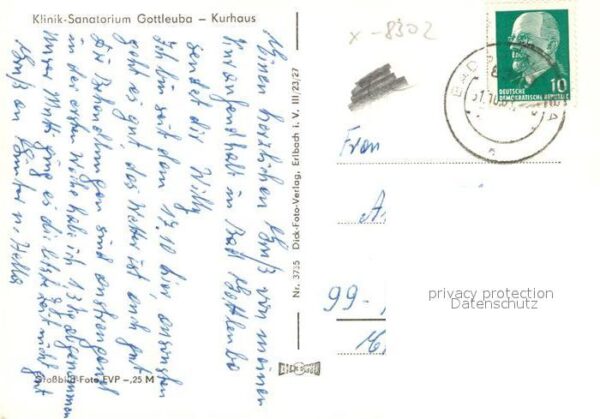 Klinik-Sanatorium Gottleuba – Kurhaus
Einen herzlichen Gruß von meinem
Kuraufenthalt in Bad Gottleuba
sendet dir Willy
Ich bin seit dem 17.10 hier, ansonsten
geht es gut, das Wetter ist auch gut
die Behandlungen sind anstrengend
in der ersten Woche habe ich 1,3 kg abgenommen
Unserer Mutti ging es die letzte Zeit nicht gut
Gruß an Günter u. Hella
Großbild-Foto EVP –,25 M
Nr. 3735 Dick-Foto-Verlag, Erlbach i. V. III/23/27
x-8302
DEUTSCHE
DEMOKRATISCHE REPUBLIK
10
Frau
99-
privacy protection
Datenschutz